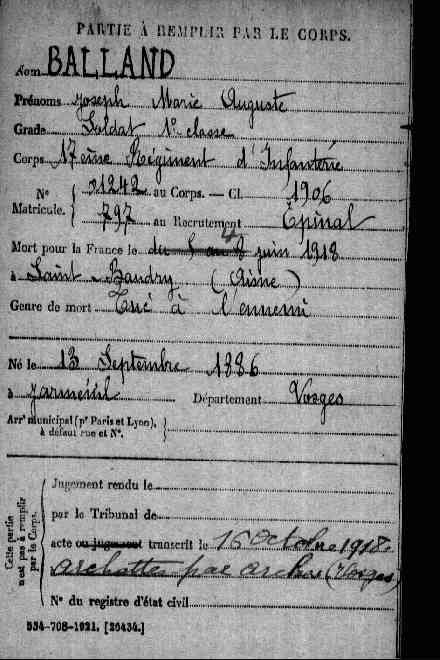 PARTIE À REMPLIR PAR LE CORPS.
Nom BALLAND
Prénoms Joseph Marie Auguste
Grade Soldat 1e classe
Corps 17ème Régiment d'Infanterie
N° Matricule. { 21242 au Corps. — Cl. 1906
797 au Recrutement Épinal
Mort pour la France le du 4 juin 1918
à Saint-Baudry (Aisne)
Genre de mort Tué à l'ennemi
Né le 13 Septembre 1886
à Jarménil Département Vosges
Arrt municipal (pr Paris et Lyon),
à défaut rue et N°.
Cette partie n'est pas à remplir par le Corps.
Jugement rendu le
par le Tribunal de
acte ou jugement transcrit le 16 Octobre 1918.
archettes par arches (Vosges)
N° du registre d'état civil
534-708-1921. [26434.]